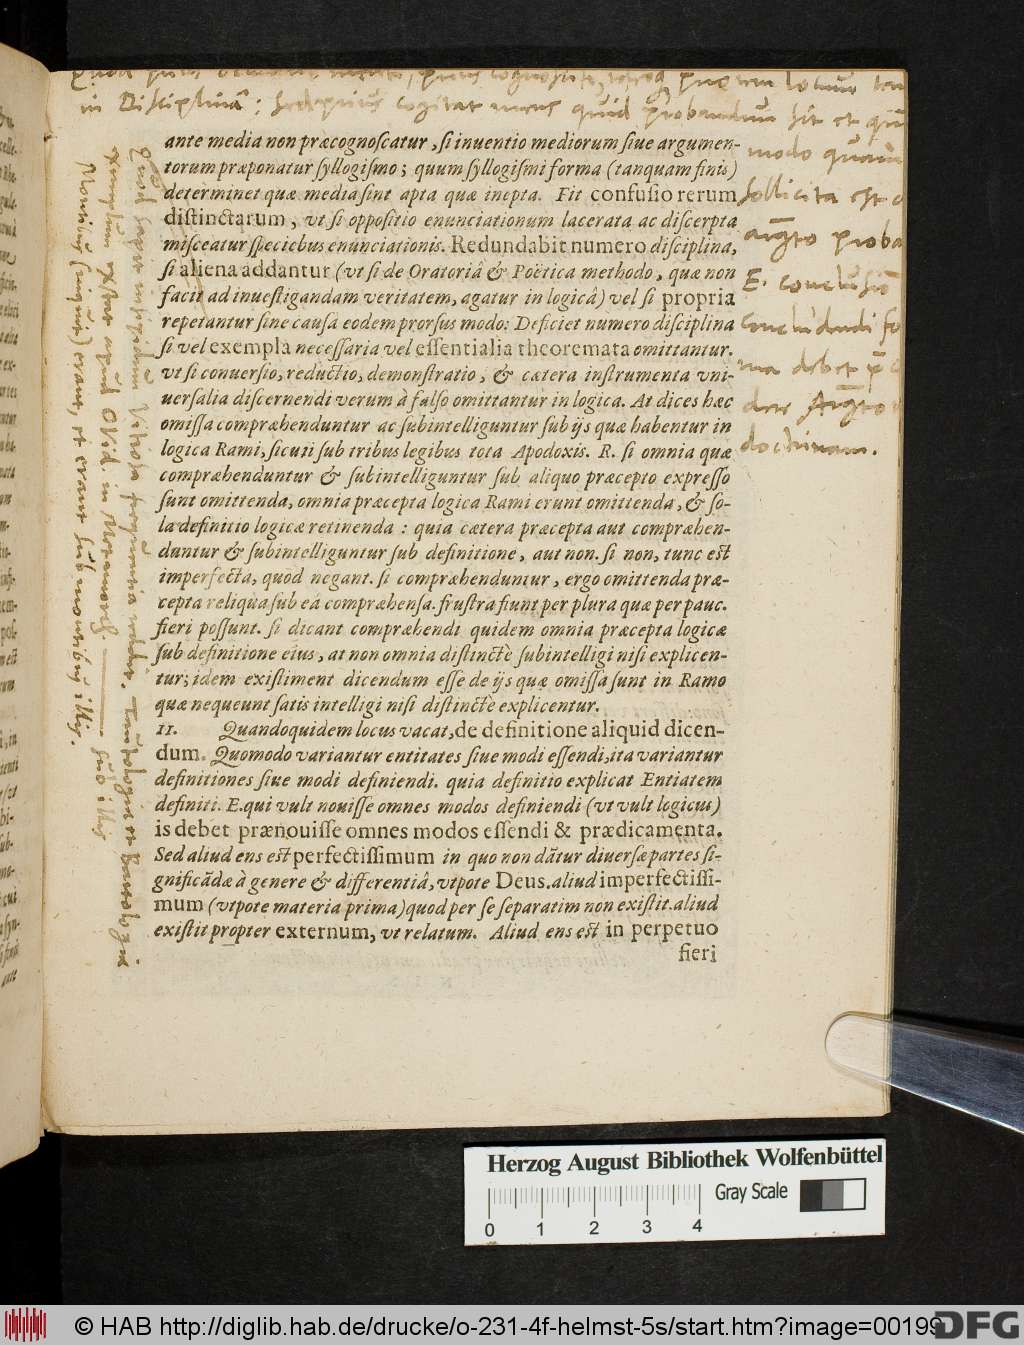 in Disciplinâ: sed prius cogitat mens quid probandum sit et
modo
sollicita est
proba
E.
concludendi
ma debet
doctrinam.
ante media non præcognoscatur, si inuentio mediorum siue argumen-
torum præponatur syllogismo; quum syllogismi forma (tanquam finis)
determinet quæ media sint apta quæ inepta. Fit confusio rerum
distinctarum, vt si oppositio enunciationum lacerata ac discerpta
misceatur speciebus enunciationis. Redundabit numero disciplina,
si aliena addantur (vt si de Oratoriâ & Poëtica methodo, quæ non
facit ad inuestigandam veritatem, agatur in logicâ) vel si propria
repetantur sine causa eodem prorsus modo: Deficiet numero disciplina
si vel exempla necessaria vel essentialia theoremata omittantur.
vt si conuersio, reductio, demonstratio, & cætera instrumenta vni-
uersalia discernendi verum â falso omittantur in logica. At dices hæc
omissa compræhenduntur ac subintelliguntur sub ijs quæ habentur in
logica Rami, sicuti sub tribus legibus tota Apodoxis. R. si omnia quæ
compræhenduntur & subintelliguntur sub aliquo præcepto expresso
sunt omittenda, omnia præcepta logica Rami erunt omittenda, & so-
la definitio logicæ retinenda: quia cætera præcepta aut compræhen-
duntur & subintelliguntur sub definitione, aut non. si non, tunc est
imperfecta, quod negant. si compræhenduntur, ergo omittenda præ-
cepta reliqua sub eâ compræhensa. frustra fiunt per plura quæ per pauc.
fieri possunt. si dicant compræhendi quidem omnia præcepta logicæ
sub definitione eius, at non omnia distinctè subintelligi nisi explicen-
tur; idem existiment dicendum esse de ijs quæ omissa sunt in Ramo
quæ nequeunt satis intelligi nisi distinctè explicentur.
11. Quandoquidem locus vacat, de definitione aliquid dicen-
dum. Quomodo variantur entitates siue modi essendi, ita variantur
definitiones siue modi definiendi. quia definitio explicat Entiatem
definiti. E. qui vult nouisse omnes modos definiendi (vt vult logicus)
is debet prænouisse omnes modos essendi & prædicamenta.
Sed aliud ens est perfectissimum in quo non dãtur diuersæ partes si-
gnificãdæ à genere & differentiâ, vtpote Deus. aliud imperfectissi-
mum (vtpote materia prima) quod per se separatim non existit. aliud
existit propter externum, vt relatum. Aliud ens est in perpetuo
fieri
exemplum extat apud Ovid. in Metamorph.
Montibus (inquit) erant, et erant sub montibus illis.
Herzog August Bibliothek Wolfenbüttel
Gray Scale
0 1 2 3 4
© HAB http://diglib.hab.de/drucke/o-231-4f-helmst-5s/start.htm?image=00199
DFG